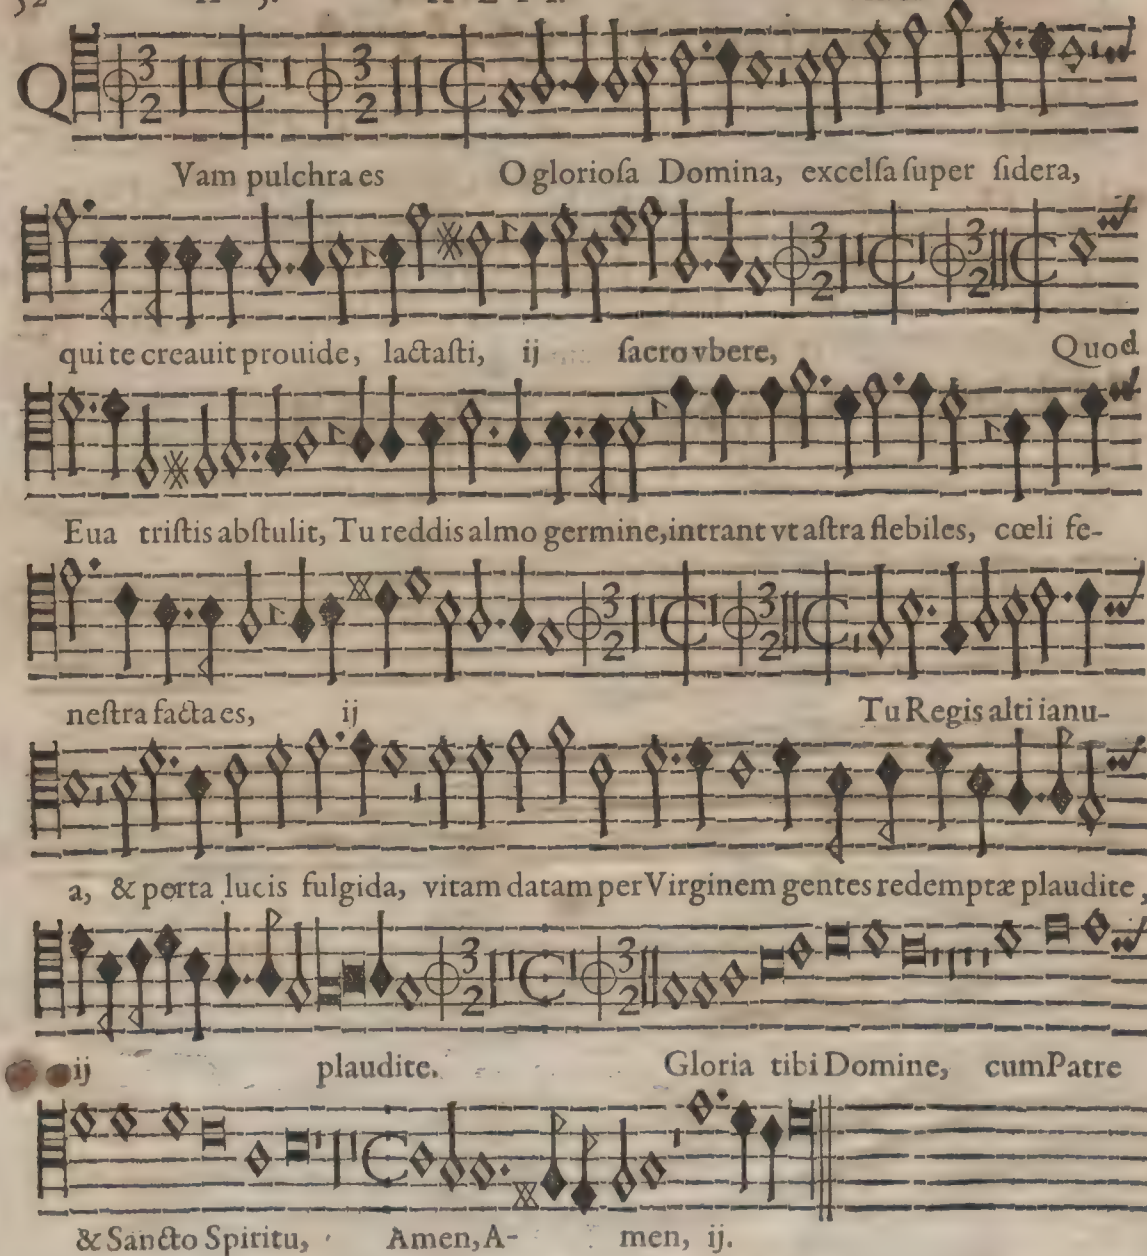 Q
Vam pulchra es O glorioſa Domina, excelſa ſuper ſidera,
qui te creauit prouide, lactaſti, ij ſacro vbere, Quod
Eua triſtis abſtulit, Tu reddis almo germine, intrant vt aſtra flebiles, cœli fe-
neſtra facta es, ij Tu Regis alti ianu-
a, & porta lucis fulgida, vitam datam per Virginem gentes redemptæ plaudite,
ij plaudite. Gloria tibi Domine, cum Patre
& Sancto Spiritu, Amen, A- men, ij.